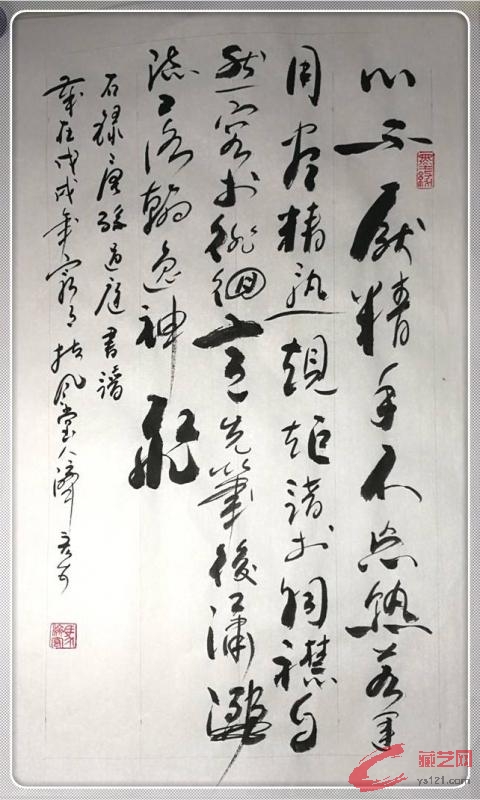 心不厭精手不忘熟若運
用盡精熟規矩諳於胸襟自
然容於徘徊意先筆後瀟灑
流落翰逸神飛
右祿唐孫過庭書譜
歲在戊戌年 月 風堂人
藏艺网
ys121.com